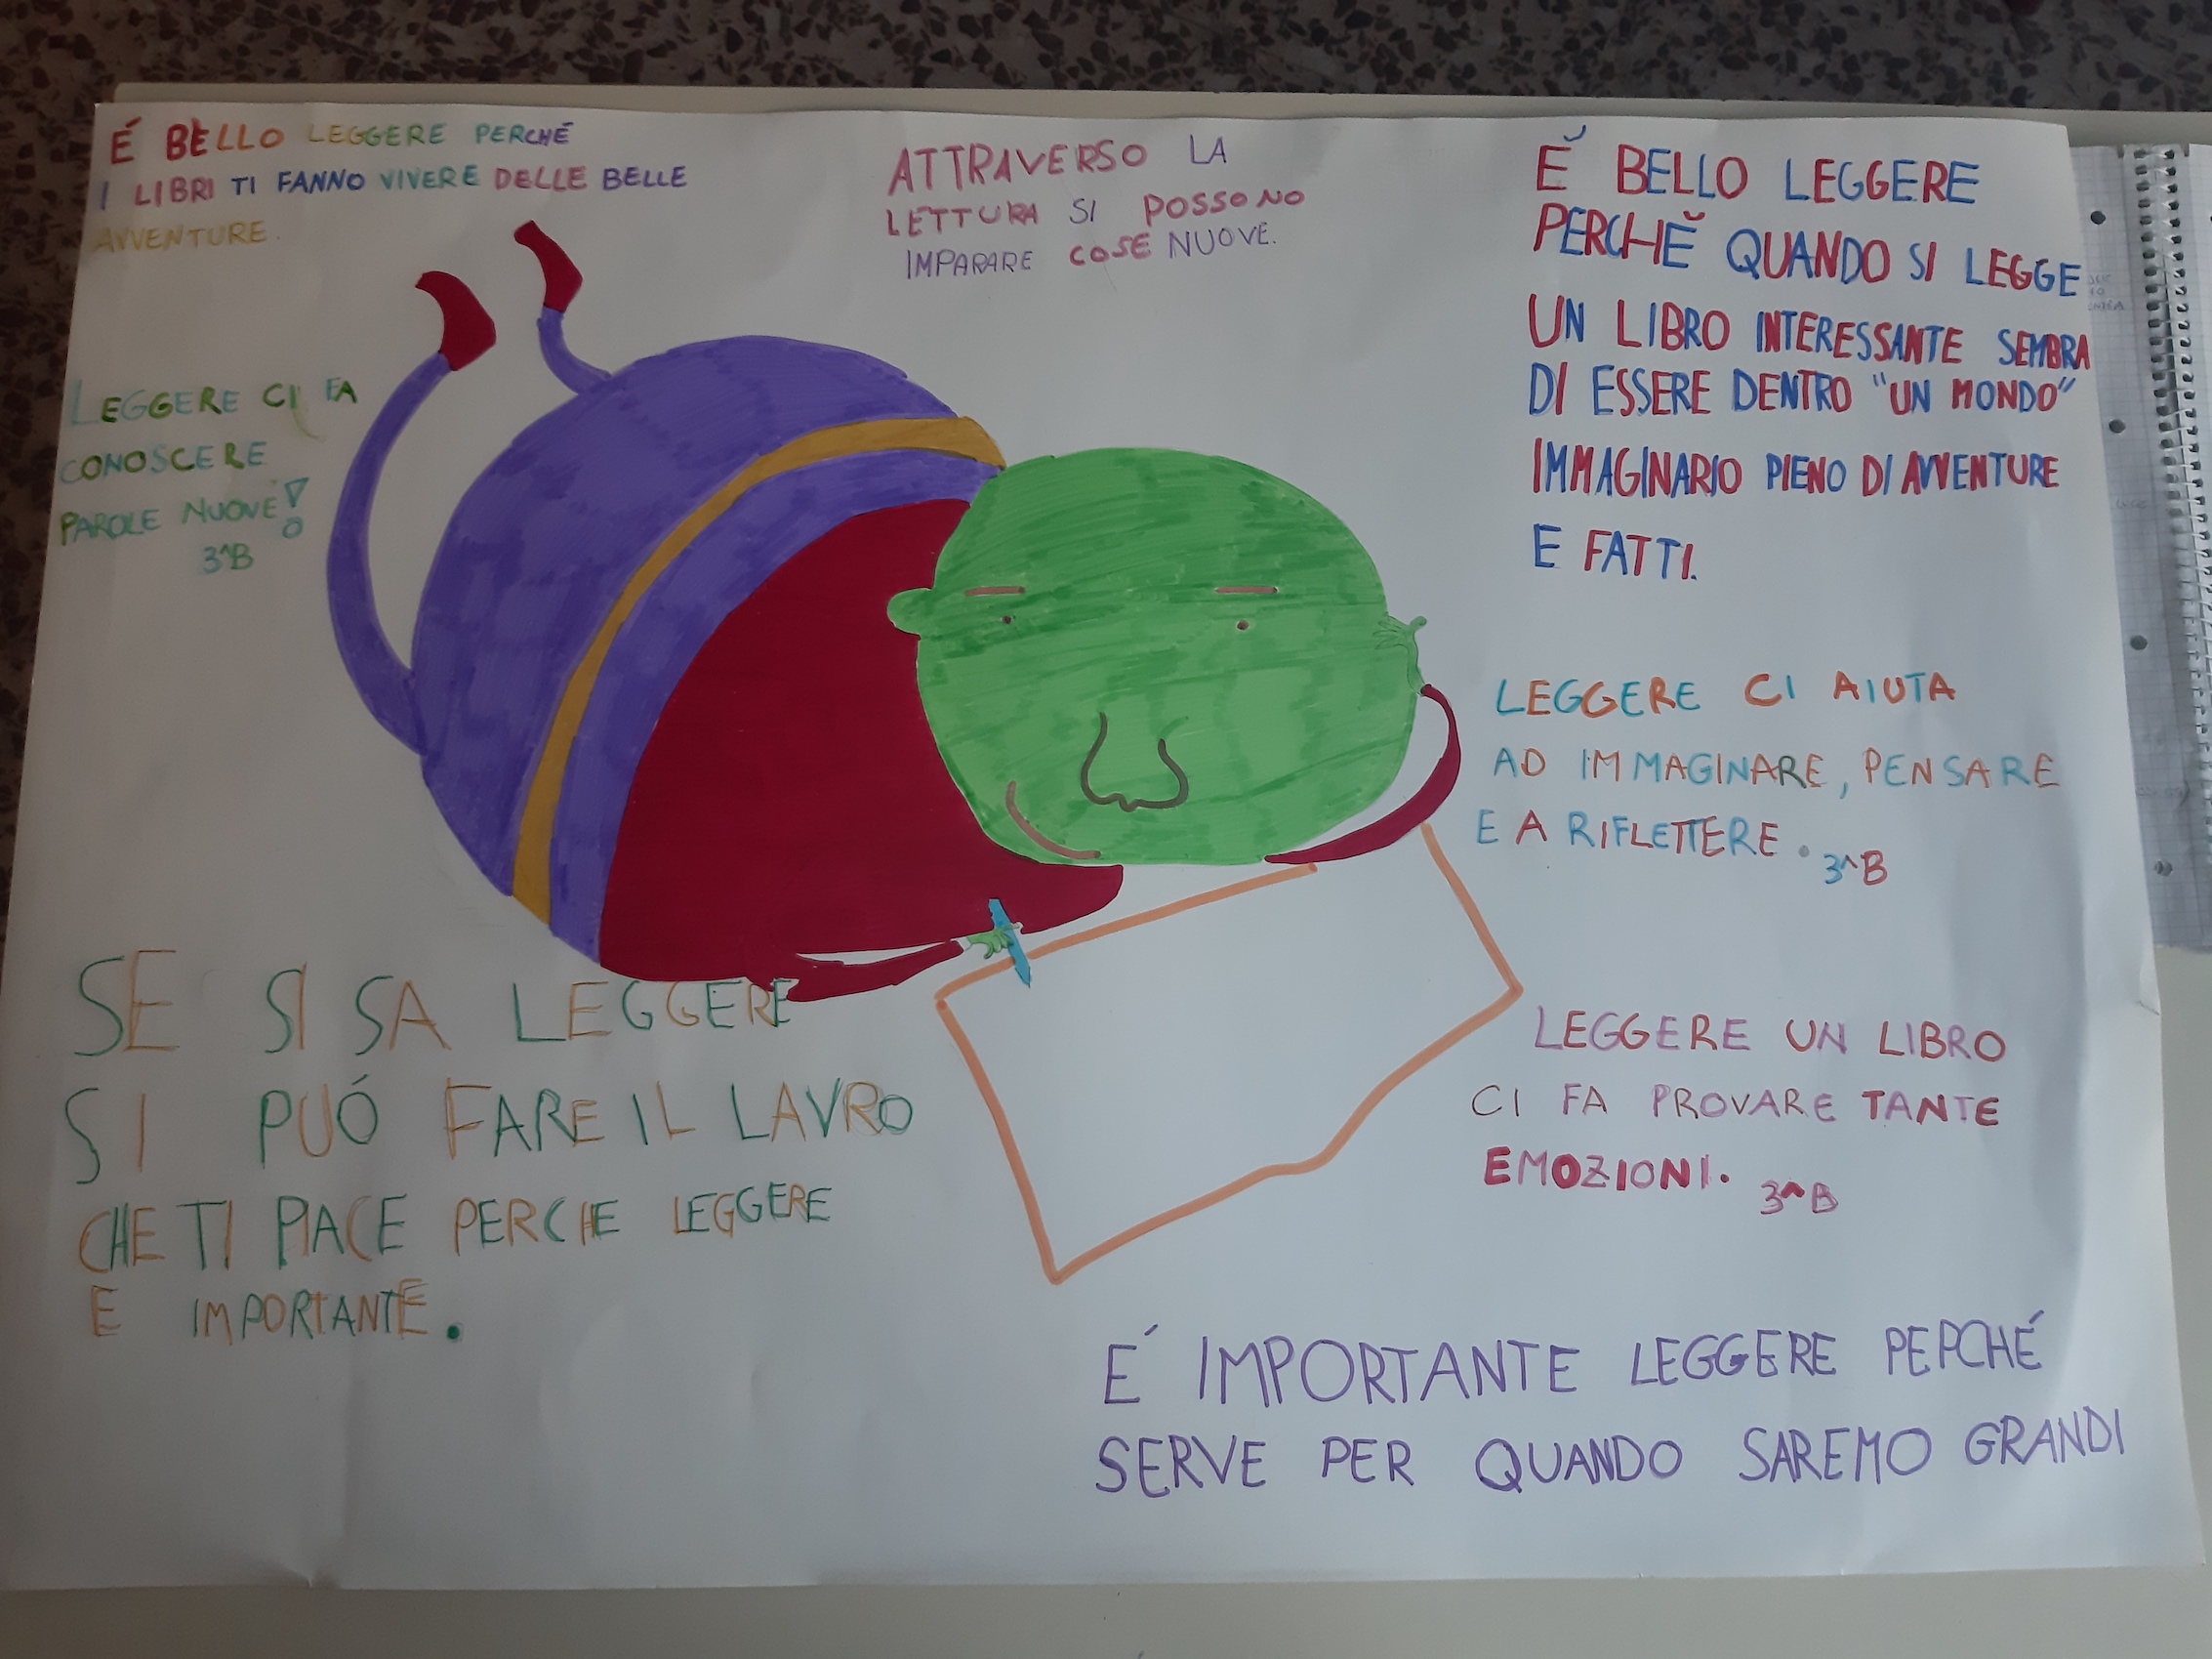 É BELLO LEGGERE PERCHÉ
I LIBRI TI FANNO VIVERE DELLE BELLE
AVVENTURE.
ATTRAVERSO LA
LETTURA SI POSSONO
IMPARARE COSE NUOVE.
É BELLO LEGGERE
PERCHÉ QUANDO SI LEGGE
UN LIBRO INTERESSANTE SEMBRA
DI ESSERE DENTRO "UN MONDO"
IMMAGINARIO PIENO DI AVVENTURE
E FATTI.
LEGGERE CI FA
CONOSCERE
PAROLE NUOVE!
3^B
LEGGERE CI AIUTA
AD IMMAGINARE, PENSARE
E A RIFLETTERE.
3^B
SE SI SA LEGGERE
SI PUÓ FARE IL LAVRO
CHE TI PIACE PERCHE LEGGERE
E IMPORTANTE.
LEGGERE UN LIBRO
CI FA PROVARE TANTE
EMOZIONI.
3^B
É IMPORTANTE LEGGERE PEPCHÉ
SERVE PER QUANDO SAREMO GRANDI